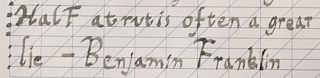 Half a trut is often a great
lie - Benjamin Franklin